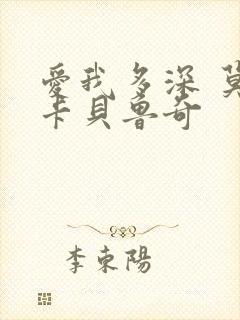 愛我多深 莫
卡貝魯奇
李東陽